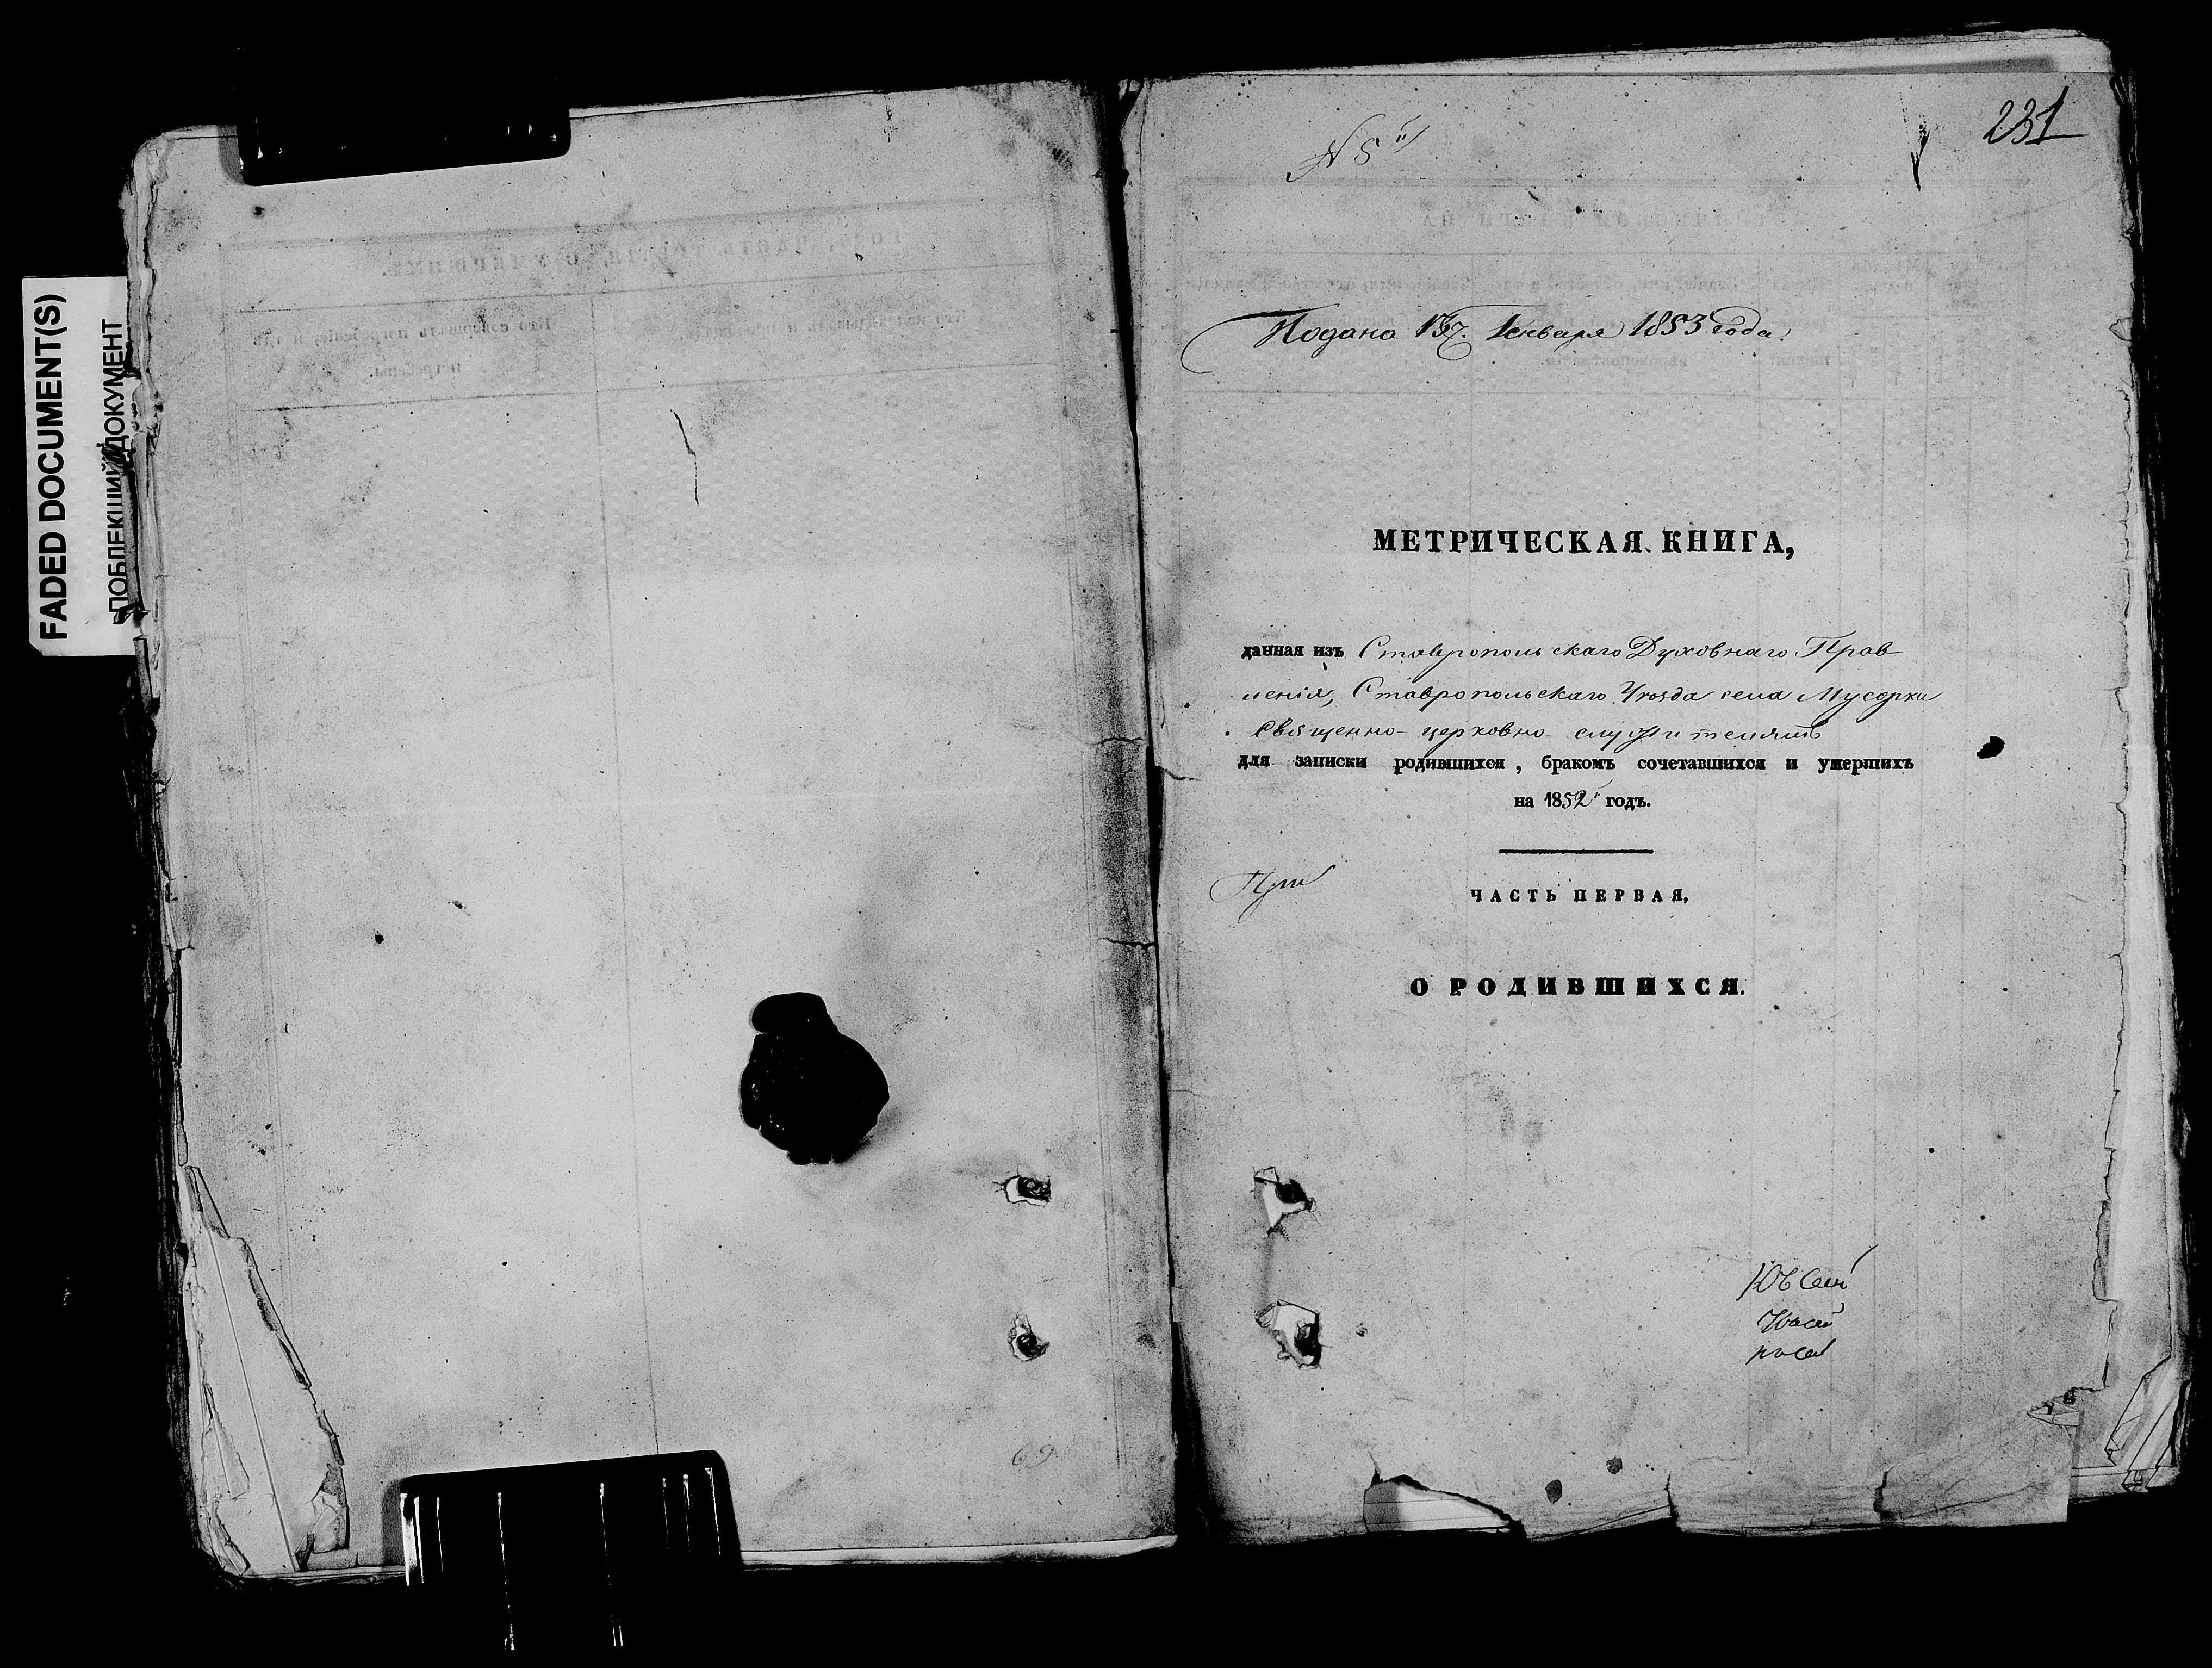 FADED DOCUMENT(S)
ПОБЛЕКШИЙ ДОКУМЕНТ
69
231
N 5й
Подана 1̶3̶7. Генваря 1853 года.
МЕТРИЧЕСКАЯ КНИГА,
данная изъ Ставропольскаго Духовнаго Прав
ленія, Ставропольскаго Уѣзда села Мусорки
Священно-церковно-служителямъ
для записки родившихся, бракомъ сочетавшихся и умершихъ
на 1852й годъ.
При
ЧАСТЬ ПЕРВАЯ,
О РОДИВШИХСЯ.